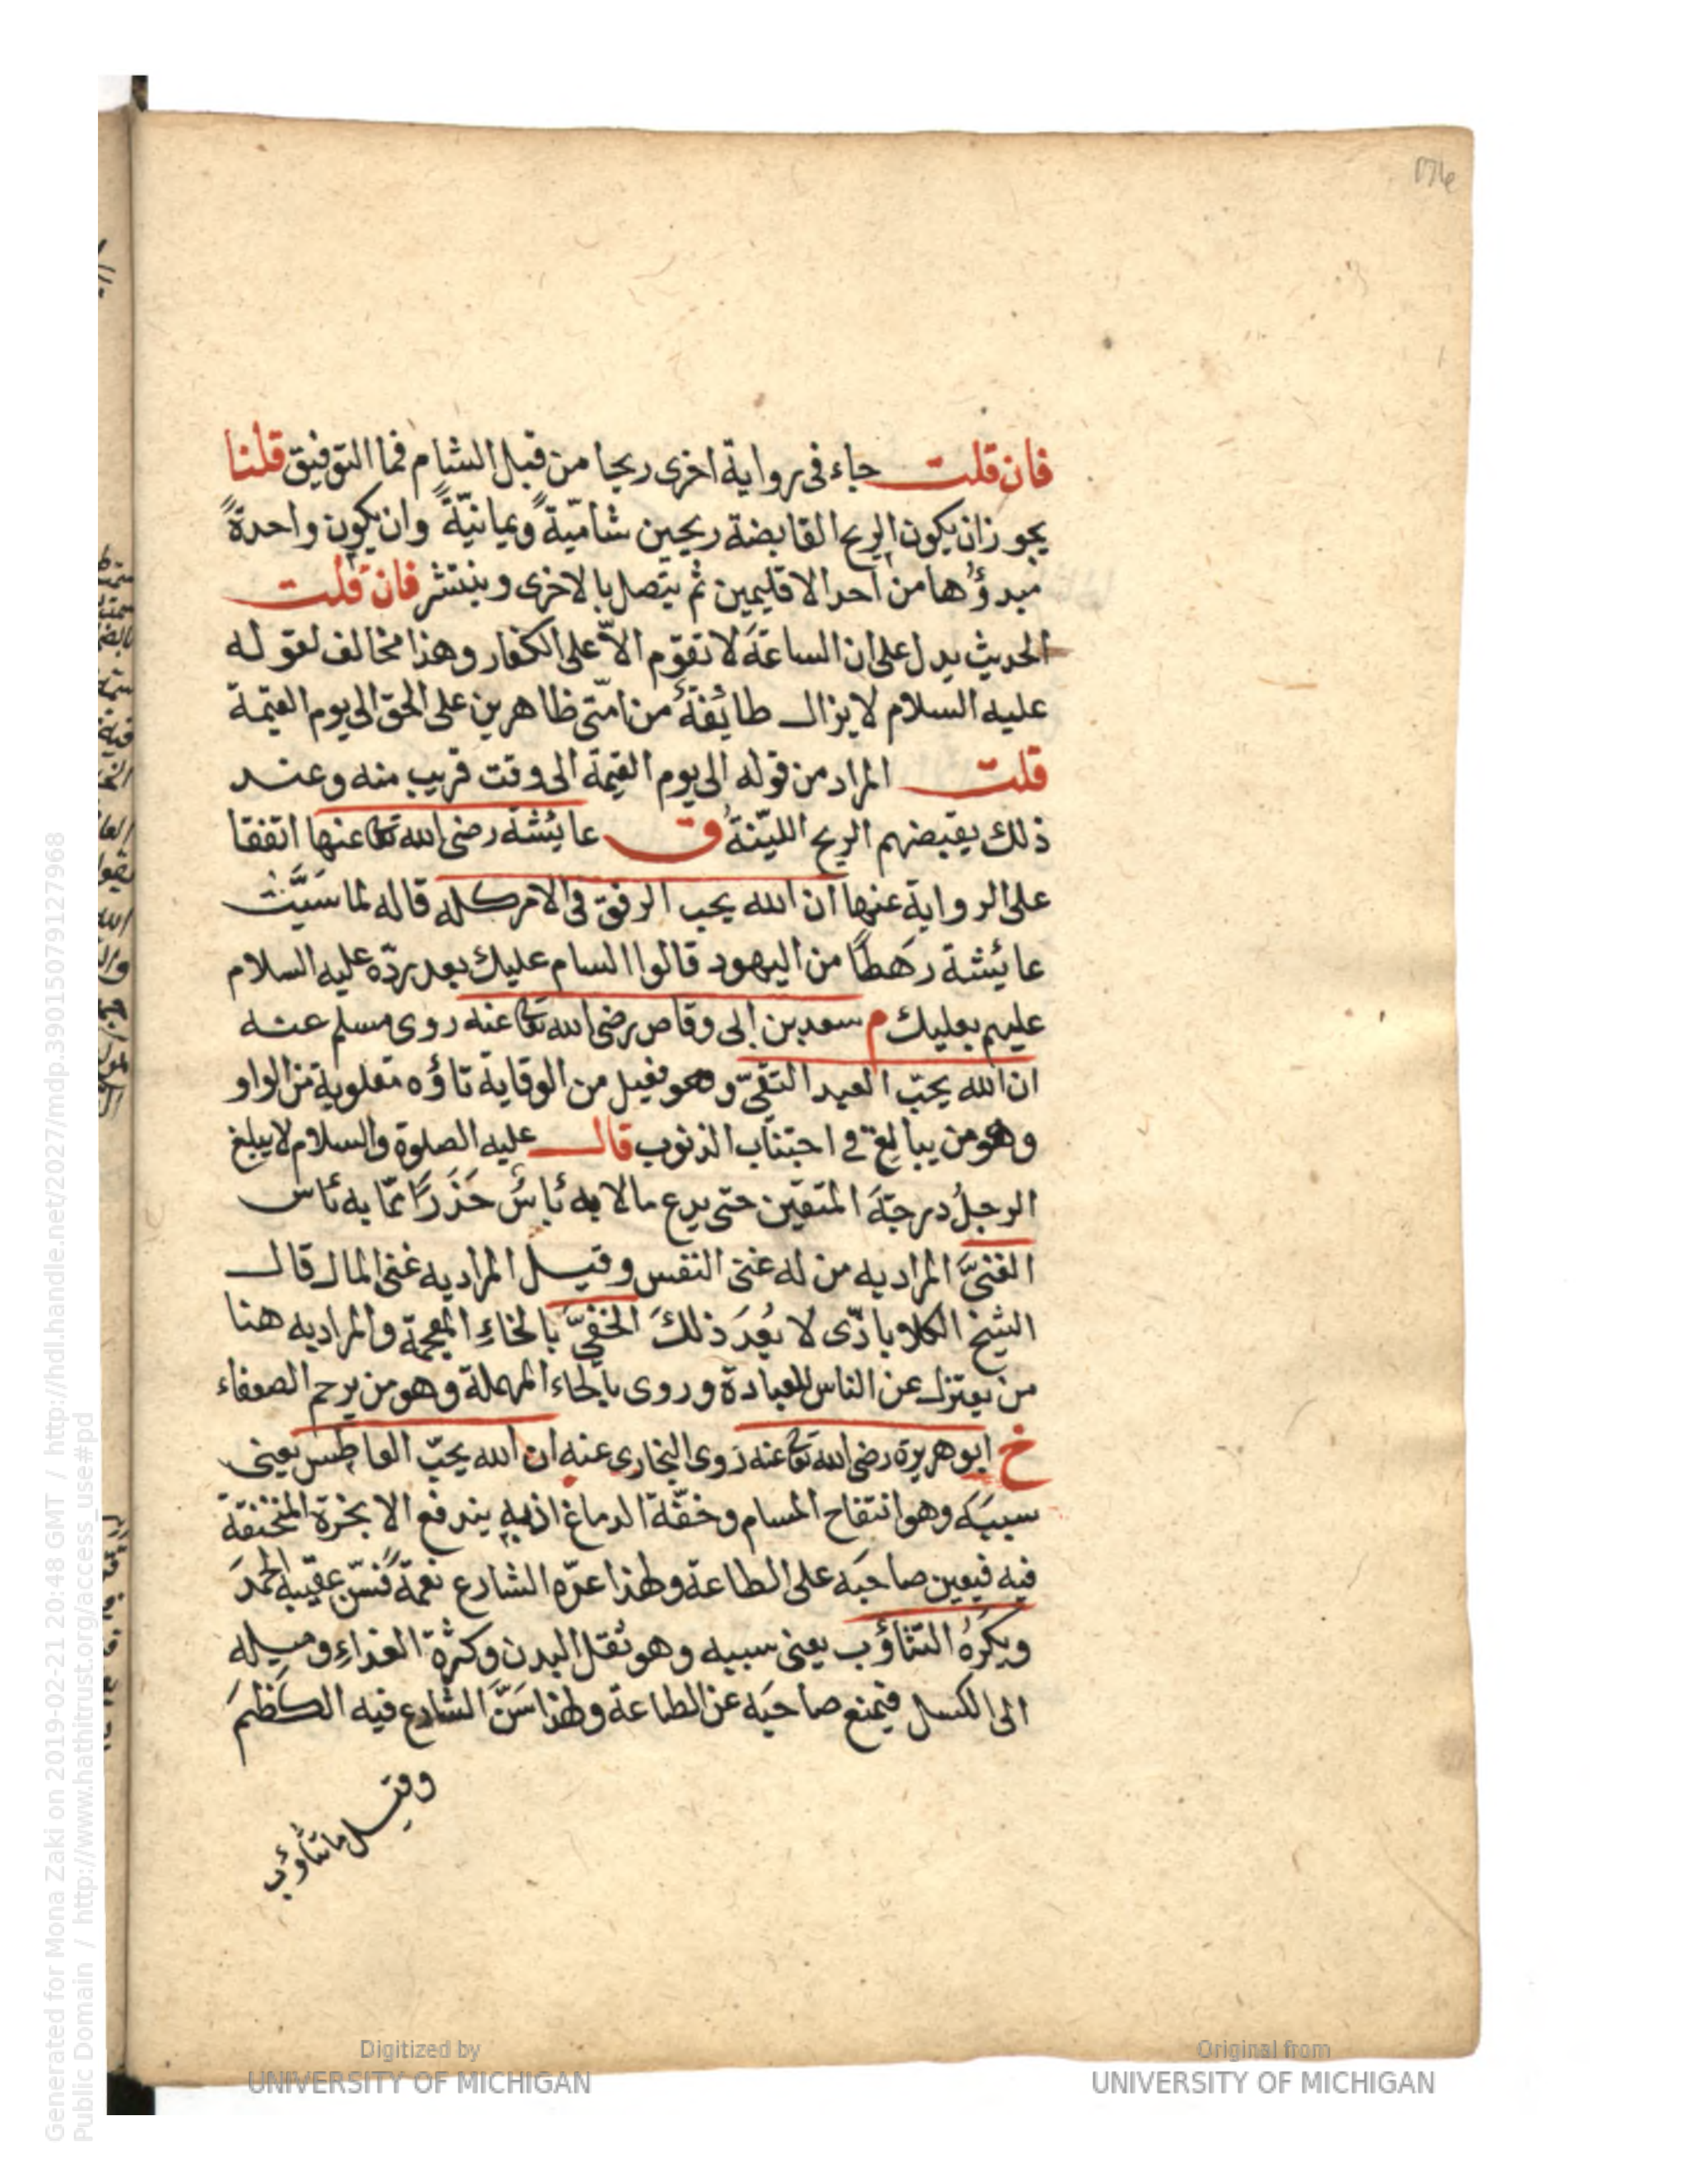 فان قلت جاء فى رواية اخرى ريحا من قبل الشام فما التوفيق قلنا
يجوز ان يكون الريح القابضة ريحين شاميّةً ويمانيّةً وان يكون واحدةً
مبدؤُها من احد الاقليمين ثم يتّصل بالاخرى وينتشر فان قلت
الحديث يدل على ان الساعةَ لا تقوّم الاّ على الكفار وهذا مخالف لقوله
عليه السلام لا يزال طائفةٌ من امّتى ظاهرين على الحق الى يوم القيمة
قلت المراد من قوله الى يوم القيمة الى وقت قريب منه وعند
ذلك يقبضهم الريح الليّنةُ ق عايشة رضى الله تعا عنها اتفقا
على الرواية عنها ان الله يحب الرفق فى الامر كله قاله لما سَبَّتْ
عايشة رَهطًا من اليهود قالوا السام عليك بعد ردّه عليه السلام
عليهم بعليك م سعد بن ابى وقاص رضى الله تعا عنه روى مسلم عنه
ان الله يحبّ العبد التقىّ وهو فعيل من الوقاية تاؤه مقلوبة من الواو
وهو من يبالغ فى اجتناب الذنوب قال عليه الصلوة والسلام لا يبلغ
الرجلُ درجةَ المتقين حتى يدع مالا به بأسٌ حَذَرًا عمّا به بأس
الغنىَّ المراد به من له غنى النفس وقيل المراد به غنى المال قال
الشيخ الكلاباذى لا يَبعُدَ ذلك الخفىَّ بالخاءِ المعجمة والمراد به هنا
من يعتزل عن الناس للعبادة وروى بالحاء المهملة وهو من يرحم الضعفاء
خ ابو هريرة رضى الله تعا عنه روى البخارى عنه ان الله يحبّ العاطس يعنى
سببَه وهو انتفاح المسام وخفّة الدماغ اذ به يندفع الابخرة المختنقة
فيه فيعين صاحبَه على الطاعة ولهذا عدّه الشارع نعمةً فسنّ عقيبه الحمدَ
ويكرَهُ التثاؤب يعنى سببه وهو ثقل البدن وكثرة الغذاءِ وميله
الى الكسل فيمنع صاحبَه عن الطاعة ولهذا سَنَّ الشارع فيه الكَظْمَ
وقيل ما تثاؤب
Generated for Mona Zaki on 2019-02-21 20:48 GMT / http://hdl.handle.net/2027/mdp.39015079127968
Public Domain / http://www.hathitrust.org/access_use#pd
Digitized by
UNIVERSITY OF MICHIGAN
Original from
UNIVERSITY OF MICHIGAN